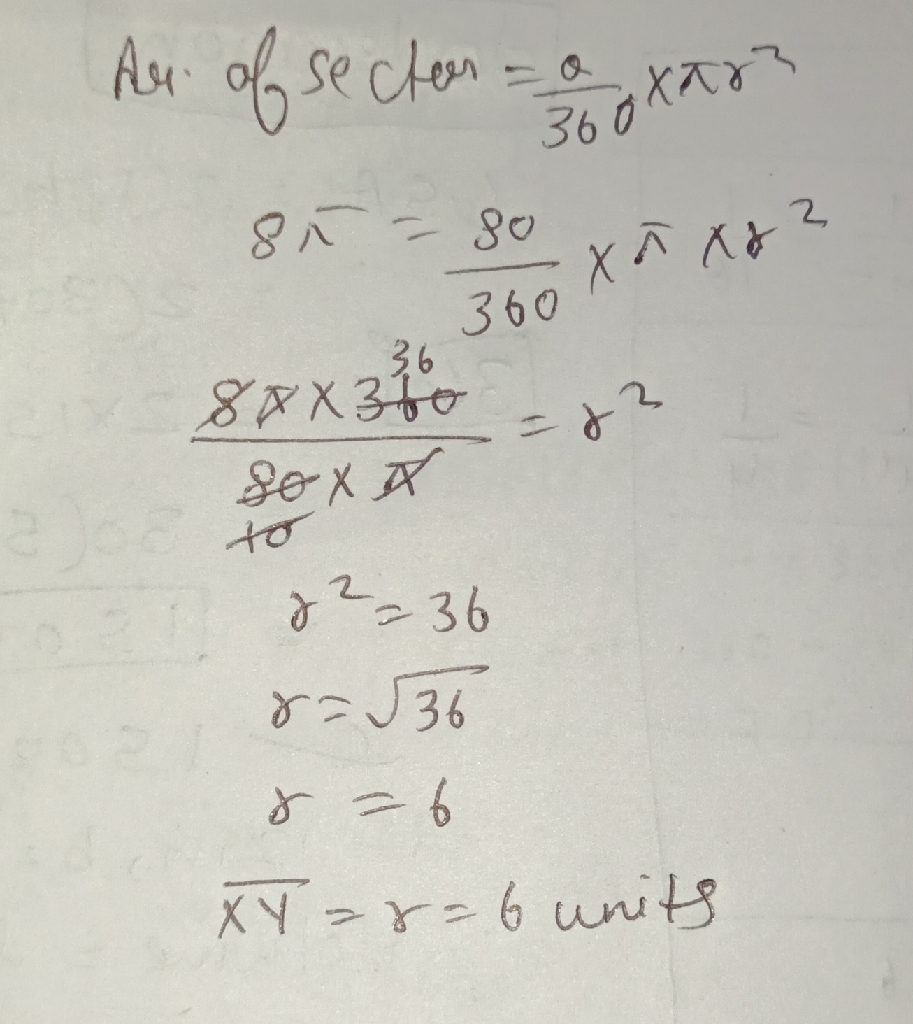 Ar. of sector = θ/360 × πr²
8π = 80/360 × π × r²
8π × 360 36 / 80 × π 10 = r²
r² = 36
r = √36
r = 6
X̅Y̅ = r = 6 units